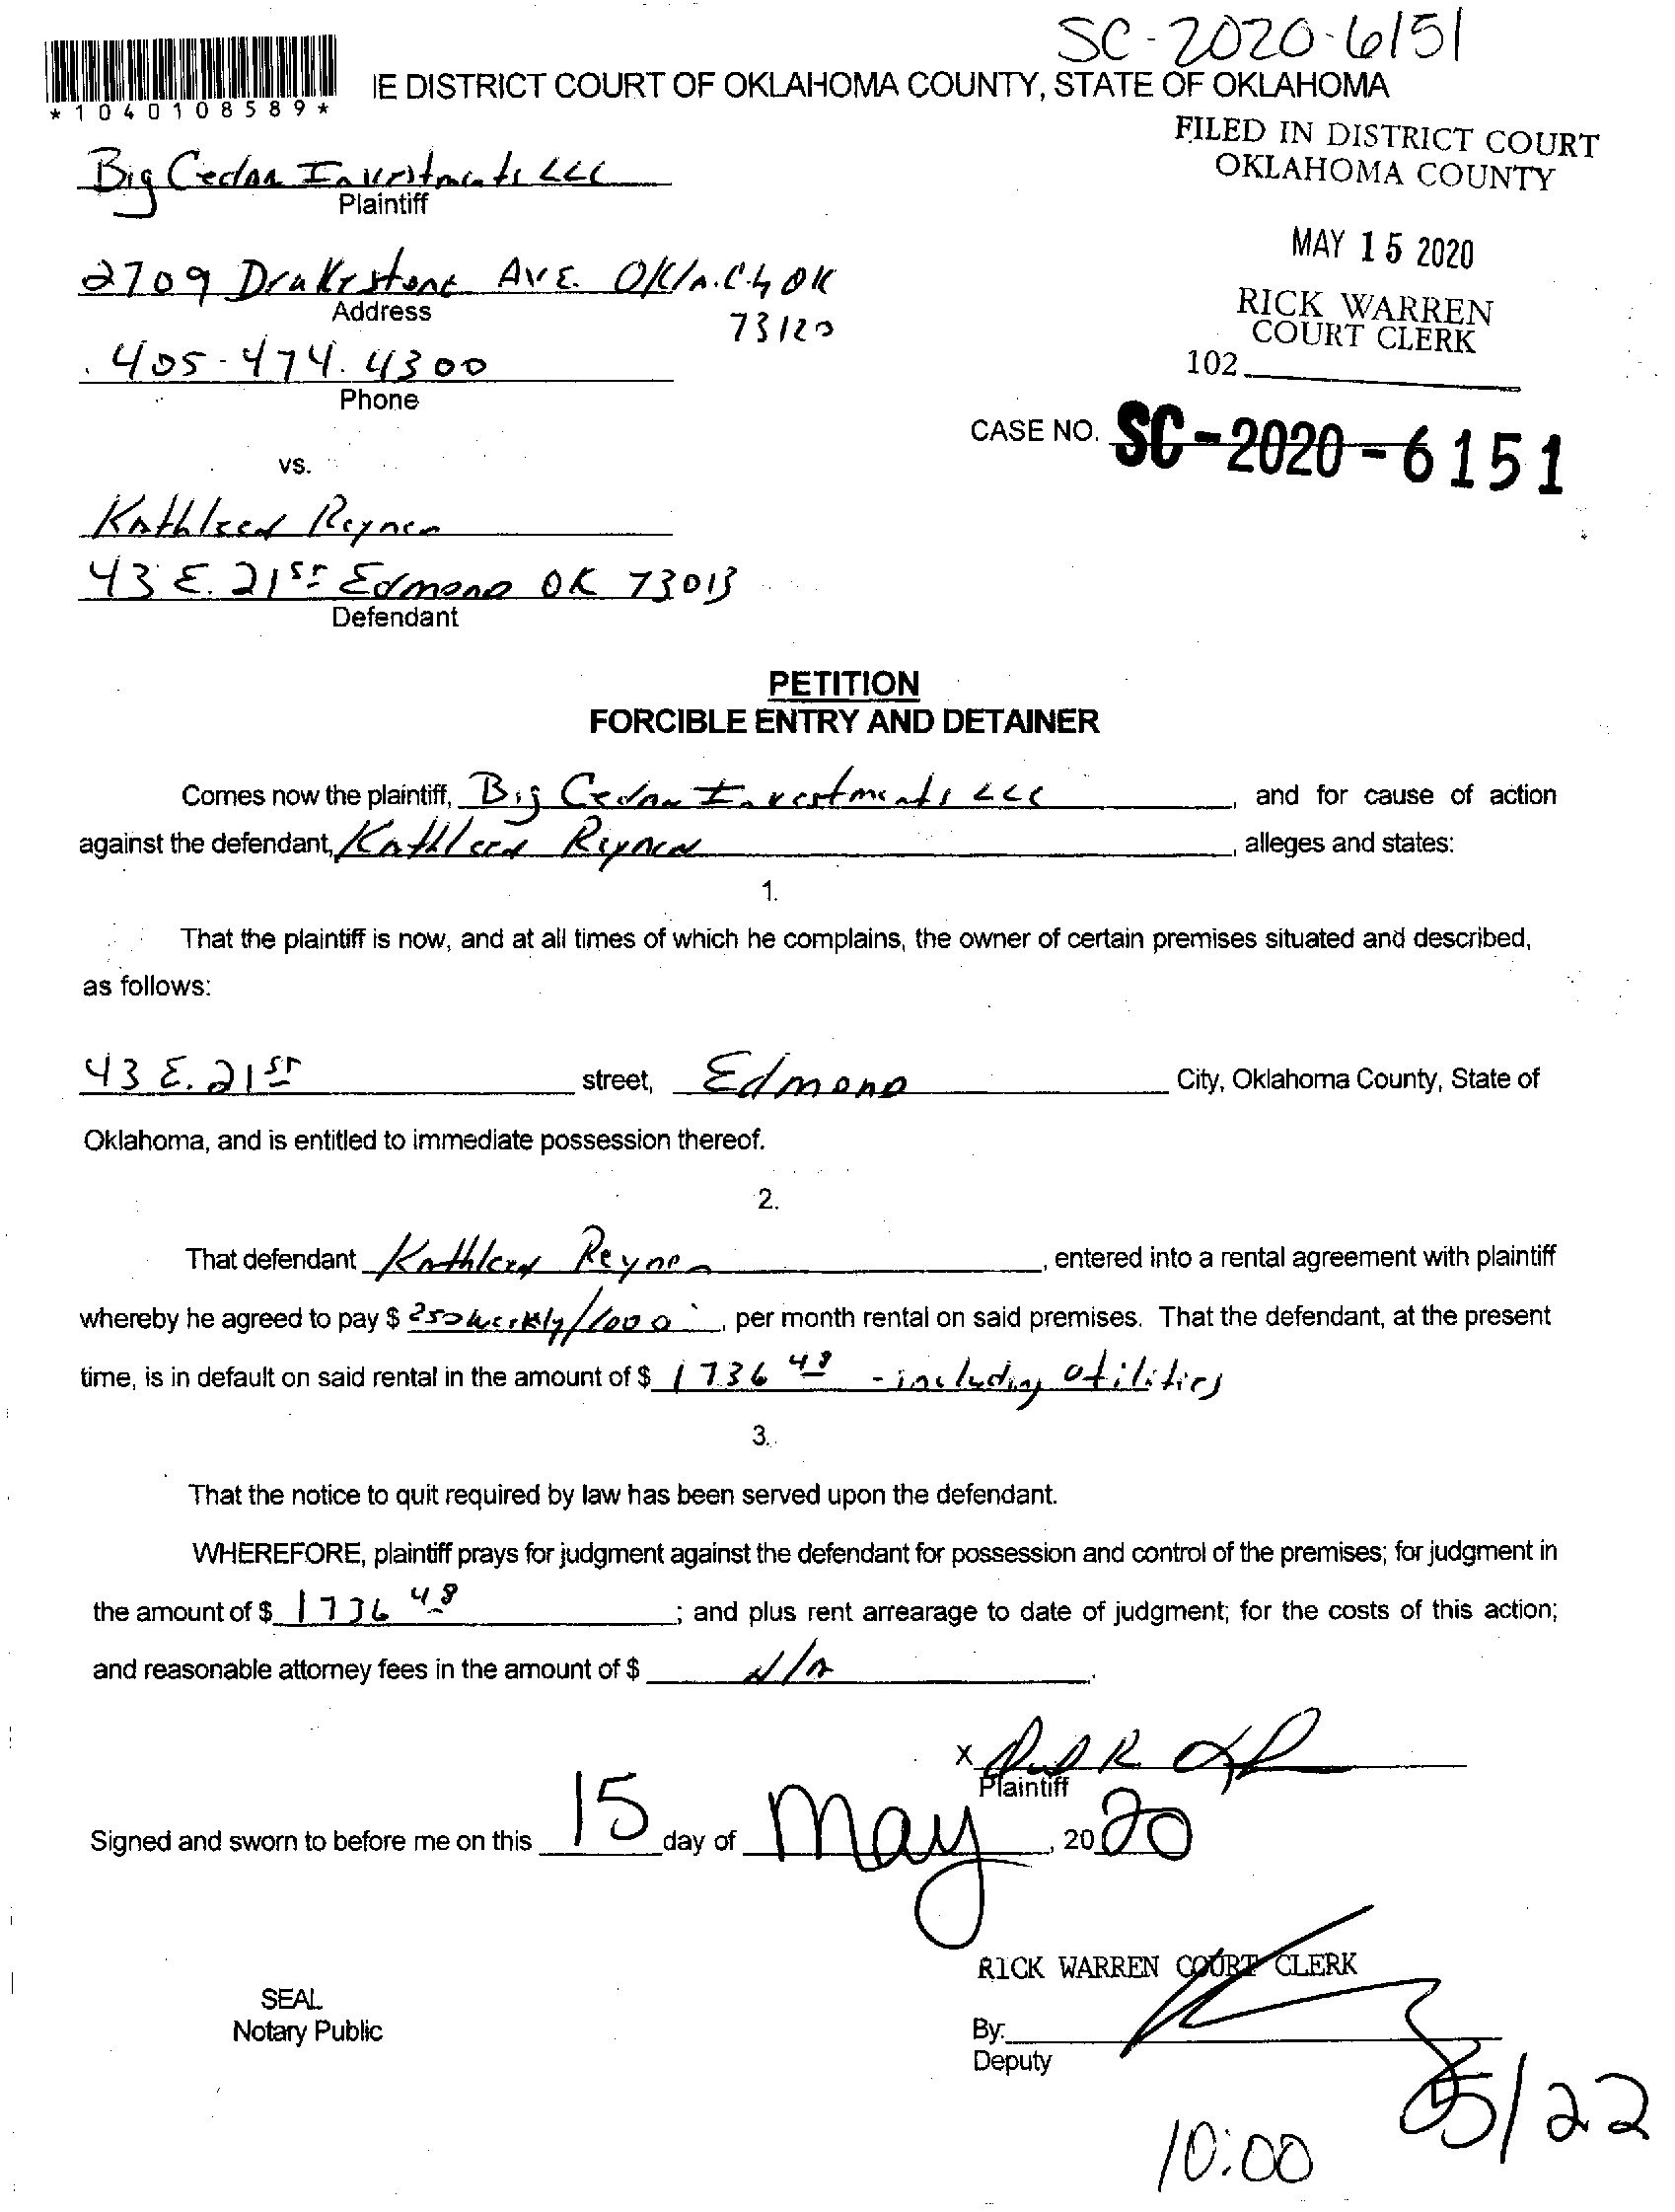 SC-2020-6151
*1040108589*
IE DISTRICT COURT OF OKLAHOMA COUNTY, STATE OF OKLAHOMA
FILED IN DISTRICT COURT
OKLAHOMA COUNTY
Big Cedar Investments LLC
Plaintiff
MAY 15 2020
2709 Drakestone AVE. Okla. City OK
Address
73120
RICK WARREN
COURT CLERK
102
405-474-4300
Phone
CASE NO. SC-2020-6151
vs.
Kathleen Reynen
43 E. 21ST Edmond OK 73013
Defendant
PETITION
FORCIBLE ENTRY AND DETAINER
Comes now the plaintiff, Big Cedar Investments LLC, and for cause of action
against the defendant, Kathleen Reynen, alleges and states:
1.
That the plaintiff is now, and at all times of which he complains, the owner of certain premises situated and described,
as follows:
43 E. 21ST street, Edmond City, Oklahoma County, State of
Oklahoma, and is entitled to immediate possession thereof.
2.
That defendant Kathleen Reynen, entered into a rental agreement with plaintiff
whereby he agreed to pay $ 250 weekly/1000, per month rental on said premises. That the defendant, at the present
time, is in default on said rental in the amount of $ 1736 48 - including utilities
3.
That the notice to quit required by law has been served upon the defendant.
WHEREFORE, plaintiff prays for judgment against the defendant for possession and control of the premises; for judgment in
the amount of $ 1736 48; and plus rent arrearage to date of judgment; for the costs of this action;
and reasonable attorney fees in the amount of $ N/A.
X
Plaintiff
Signed and sworn to before me on this 15 day of May, 2020
RICK WARREN COURT CLERK
SEAL
Notary Public
By:
Deputy
05/22
10:00